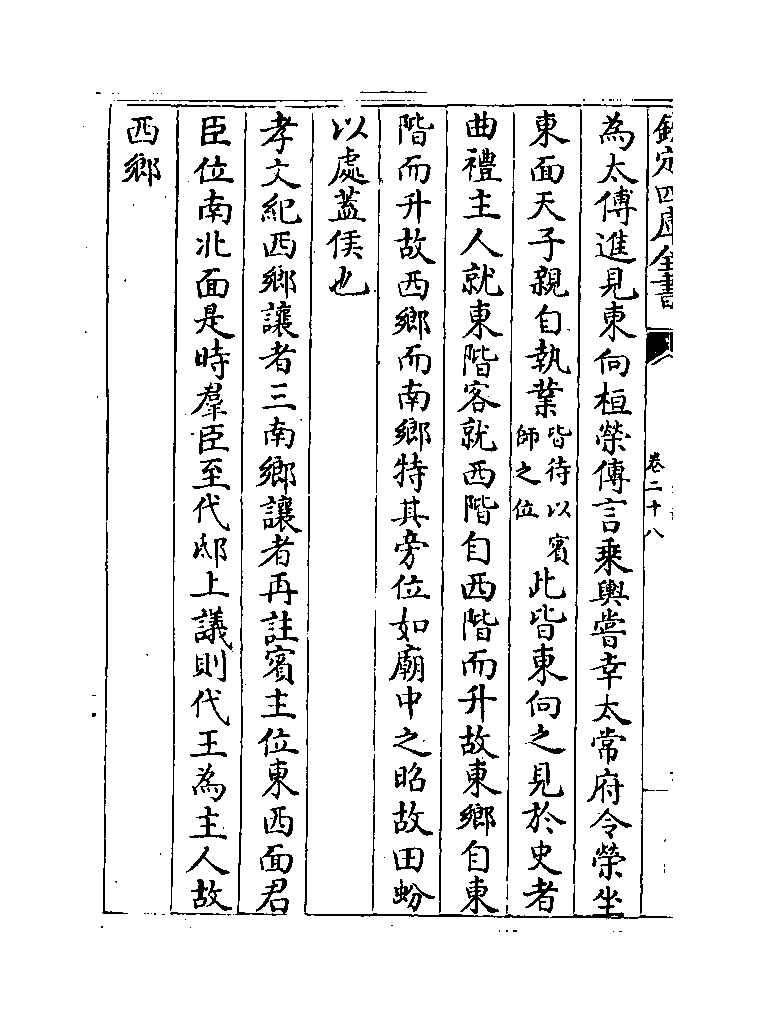 欽定四庫全書
卷二十八
為太傅進見東向桓榮傳言乘輿嘗幸太常府令榮坐
東面天子親自執業皆待以賓師之位此皆東向之見於史者
曲禮主人就東階客就西階自西階而升故東鄉自東
階而升故西鄉而南鄉特其旁位如廟中之昭故田蚡
以處蓋侯也
孝文紀西鄉讓者三南鄉讓者再註賓主位東西面君
臣位南北面是時羣臣至代邸上議則代王為主人故
西鄉